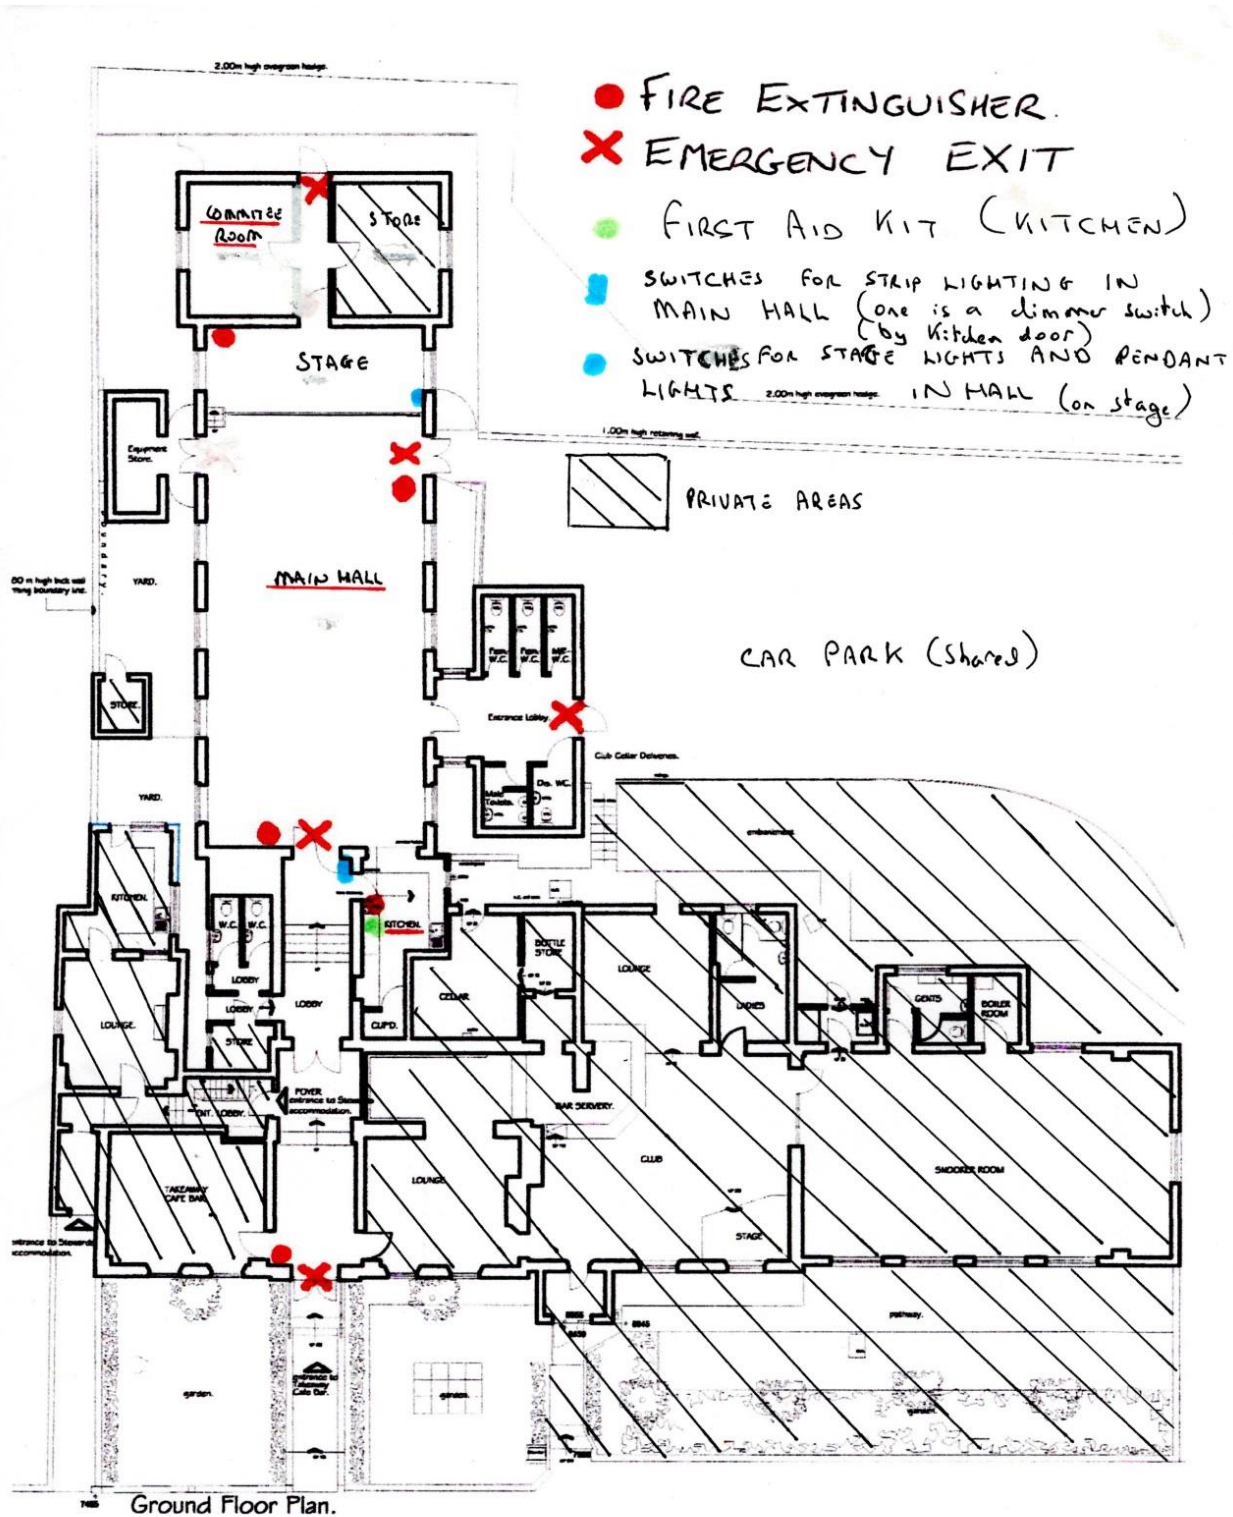 2.00m high evergreen hedge.
FIRE EXTINGUISHER.
EMERGENCY EXIT
FIRST AID KIT (KITCHEN)
SWITCHES FOR STRIP LIGHTING IN
MAIN HALL (one is a dimmer switch)
(by Kitchen door)
SWITCHES FOR STAGE LIGHTS AND PENDANT
LIGHTS IN HALL (on stage)
2.00m high evergreen hedge.
1.00m high retaining wall.
PRIVATE AREAS
COMMITEE
ROOM
STORE
STAGE
Equipment
Store.
MAIN HALL
YARD.
CAR PARK (Shared)
Fem.
W.C.
Fem.
W.C.
W.C.
STORE.
Entrance Lobby.
Club Cellar Deliveries.
Male
Toilets.
Dis. WC.
YARD.
embankment.
KITCHEN.
W.C.
W.C.
KITCHEN.
LOBBY
LOBBY
LOBBY
STORE
CUPD.
CELLAR
BOTTLE
STORE
LOUNGE
LADIES
GENTS
BOILER
ROOM
LOUNGE.
FOYER
entrance to
accommodation.
ENT. LOBBY.
BAR SERVERY.
CLUB
SNOOKER ROOM
TAKEAWAY
CAFE BAR
LOUNGE
STAGE
entrance to Stewards
accommodation.
pathway.
garden.
entrance to
Takeaway
Cafe Bar.
garden.
garden.
Ground Floor Plan.